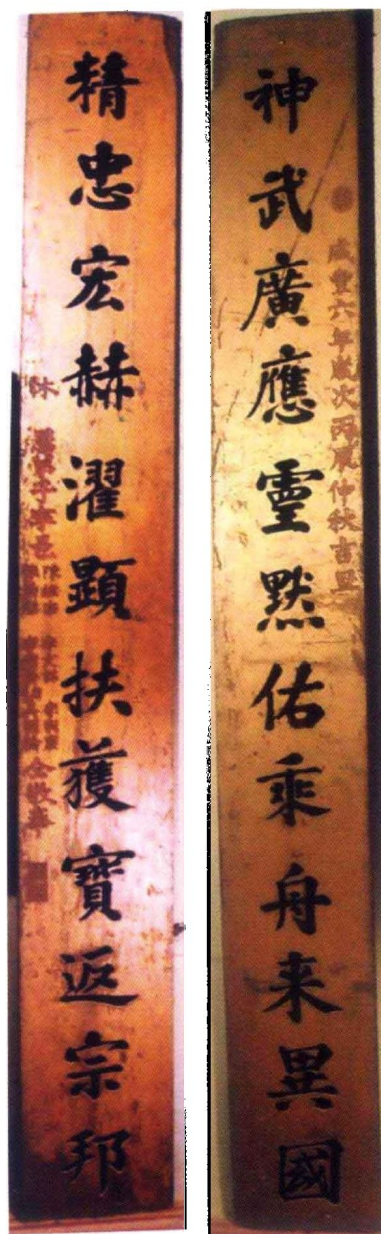 神武廣應霊黙佑乘舟来異國
咸豐六年歲次丙辰仲秋吉旦
精忠宏赫濯顕扶獲寶返宗邦
沐